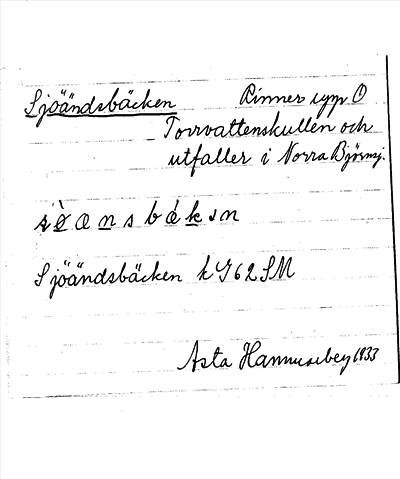 Sjöändsbäcken Rinner upp O
Torrvattenskullen och
utfaller i Norra Björnsj.
Sjöändsbäcken k I 62 SM
Asta 1933